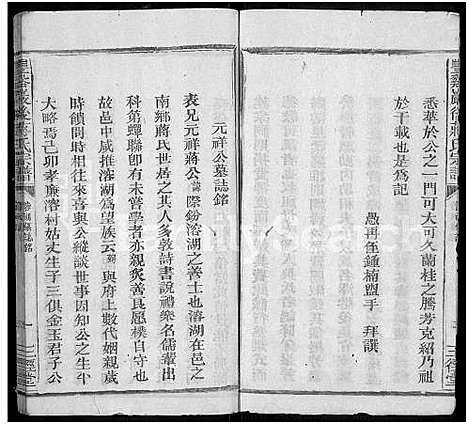 悉華於公之一門可大可久蘭桂之騰芳克紹乃祖
於千載也是為記
愚再侄鍾楠盟手 拜譔
三徑堂
元祥公墓誌銘
表兄元祥蔣公諱際鈖溶湖之善士也溶湖在邑之
南鄉蔣氏世居之其人多敦詩書說禮樂名儒輩出
科第蟬聯卽有未嘗學者亦親炙善良愿樸自守也
故邑中咸推溶湖為望族云銘與府上數代姻親歲
時饋問時相往來喜與公縱談世事因知公之生平
大略焉己卯孝廉溶村姑丈生子三俱金玉君子公